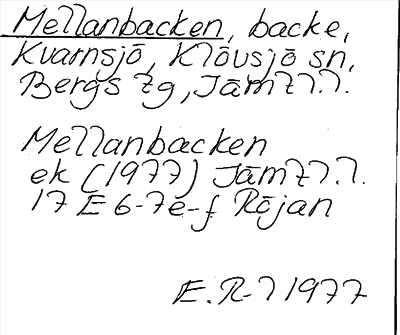 Mellanbacken, backe,
Kvarnsjö, Klövsjö sn,
Bergs tg, Jämtl.l.
Mellanbacken
ek (1977) Jämtl.l.
17 E 6-7e-f Röjan
E. R-l 1977